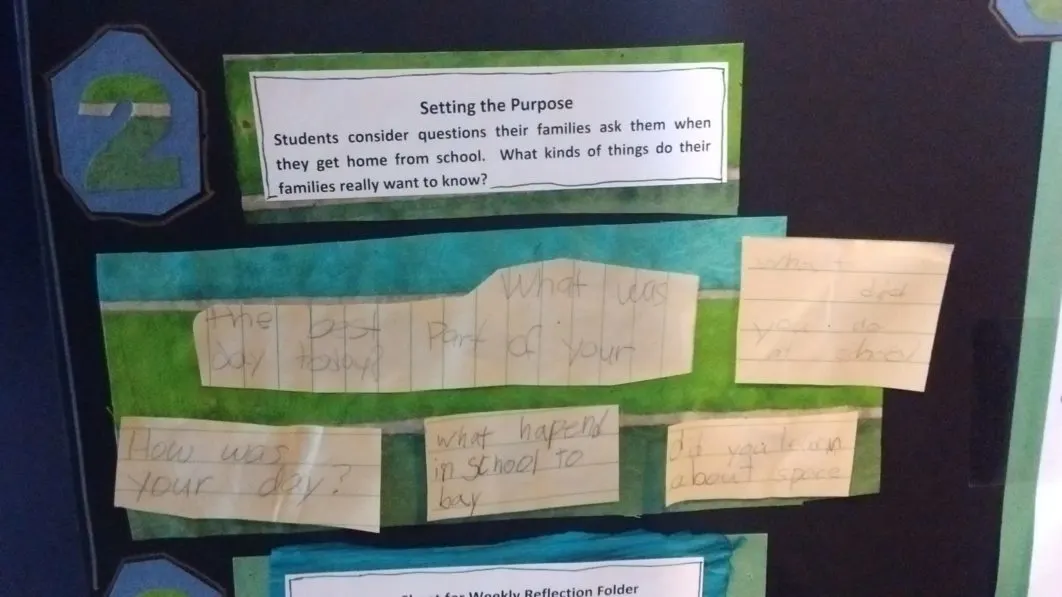 2
Setting the Purpose
Students consider questions their families ask them when
they get home from school. What kinds of things do their
families really want to know?
What was
the best part of your
day today?
what
did
you do
at school
How was
your day?
what hapend
in school to
bay
did you learn
about space
Sheet for Weekly Reflection Folder